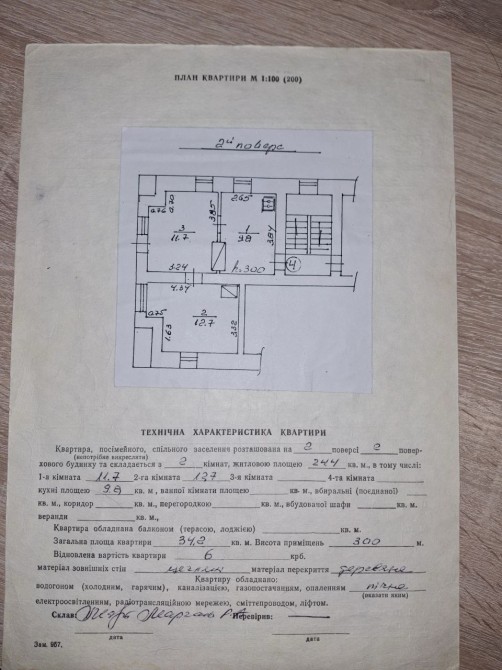 ПЛАН КВАРТИРИ М 1:100 (200)
2й поверх
0.76
0.70
3.85
2.65
3
11.7
1
9.8
3.84
h=3.00
4
3.24
4.54
0.75
1.63
2
12.7
3.32
ТЕХНІЧНА ХАРАКТЕРИСТИКА КВАРТИРИ
Квартира, посімейного, спільного заселення розташована на 2 поверсі 2 повер-
(непотрібне викреслити)
хового будинку та складається з 2 кімнат, житловою площею 24.4 кв. м., в тому числі:
1-а кімната 11.7 2-га кімната 12.7 3-я кімната 4-та кімната
кухні площею 9.8 кв. м., ванної кімнати площею кв. м., вбиральні (поєднаної)
кв. м., коридор кв. м., перегородкою кв. м., вбудованої шафи кв. м.
веранди кв. м.,
Квартира обладнана балконом (терасою, лоджією) кв. м.
Загальна площа квартири 34.2 кв. м. Висота приміщень 3.00 м.
Відновлена вартість квартири б крб.
матеріал зовнішніх стін цегляні матеріал перекриття деревяне
Квартиру обладнано:
водогоном (холодним, гарячим), каналізацією, газопостачанням, опаленням пічне
(вказати яким)
електроосвітленням, радіотрансляційною мережею, сміттєпроводом, ліфтом.
Склав: Перевірив:
дата дата
Зам. 957.